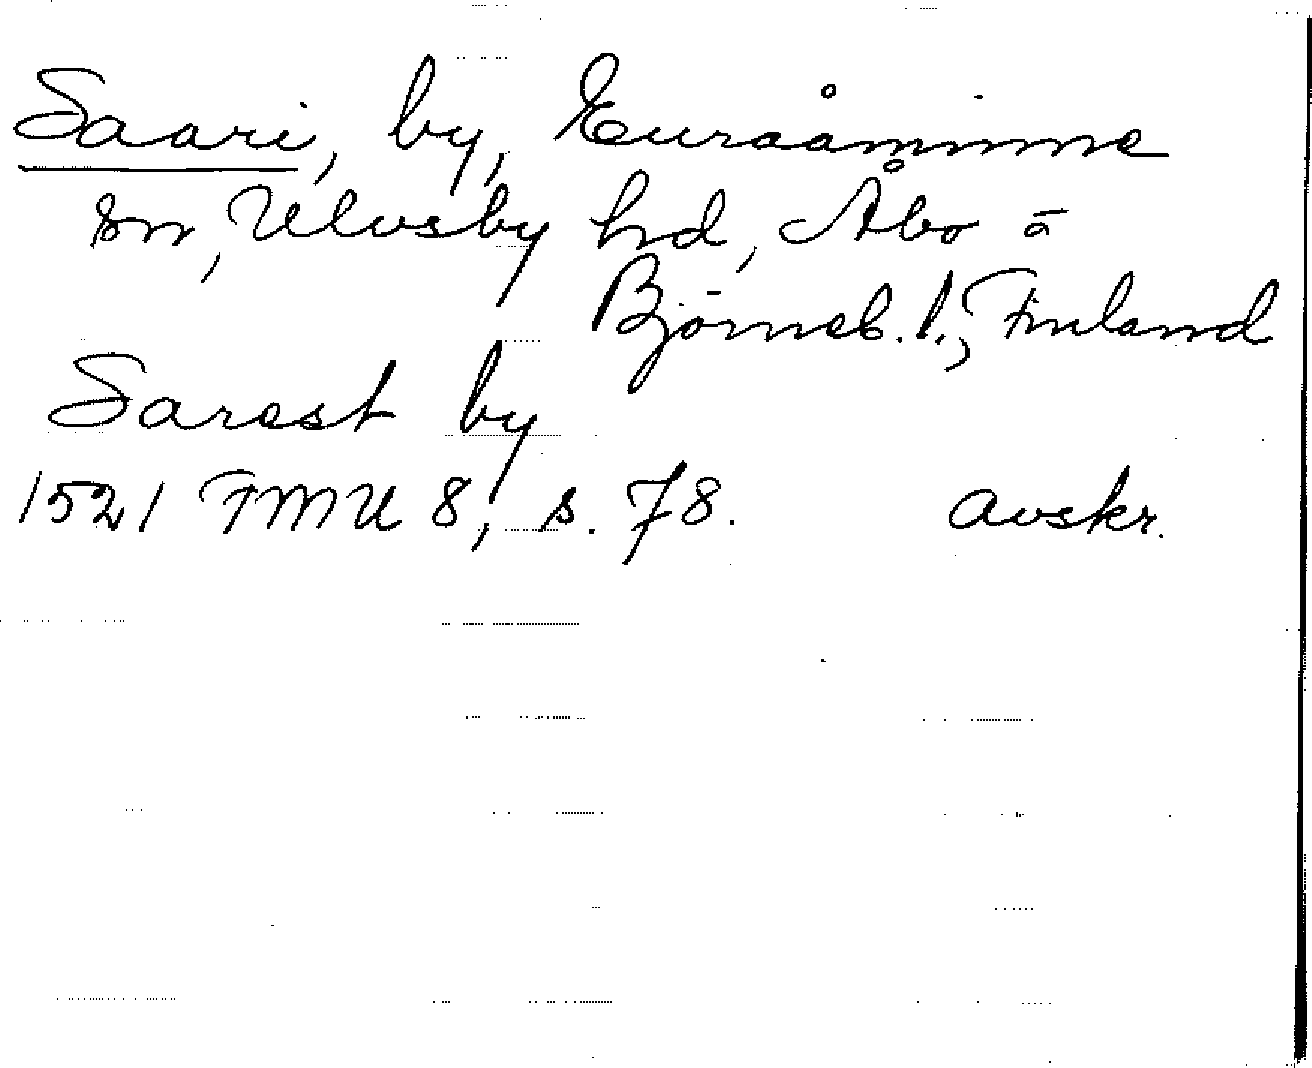 Saari, by, Euraåminne
sn, Ulvsby hd, Åbo o
Björneb. l., Finland
Sarest by
1521 FMU 8, s. 78. avskr.